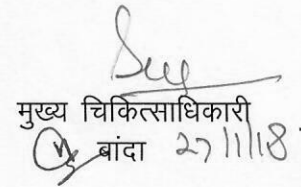 मुख्य चिकित्साधिकारी
बांदा 27/11/18